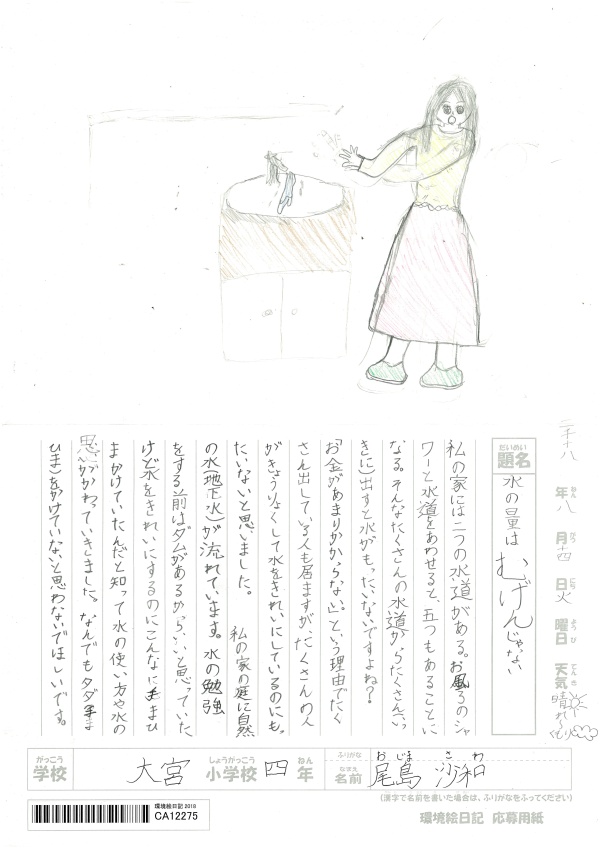 二千十八年八月十四日火曜日 天気 晴れ～くもり
ねん がつ にち ようび てんき
題名 水の量はむげんじゃない
だいめい
私の家には二つの水道がある。お風ろのシャ
ワーと水道をあわせると、五つもあることに
なる。そんなたくさんの水道からたくさん(いっ
きに)出すと水がもったいないですよね？
「お金があまりかからない」という理由でたく
さん出している人も居ますが、たくさんの人
がきょうりょくして水をきれいにしているのにもっ
たいないと思いました。 私の家の庭に自然
の水(地下水)が流れています。水の勉強
をする前はダムがあるから、いいと思っていた
けど水をきれいにするのにこんなにもまひ
まかけていたんだと知って水の使い方や水の
思いがかわっていきました。なんでもタダ(手ま
ひま)をかけていないと思わないでほしいです。
がっこう しょうがっこう ねん ふりがな おじま さわ
学校 大宮 小学校 四 年 名前 尾島 沙和
なまえ
(漢字で名前を書いた場合は、ふりがなをふってください)
環境絵日記 2018
CA12275
環境絵日記 応募用紙